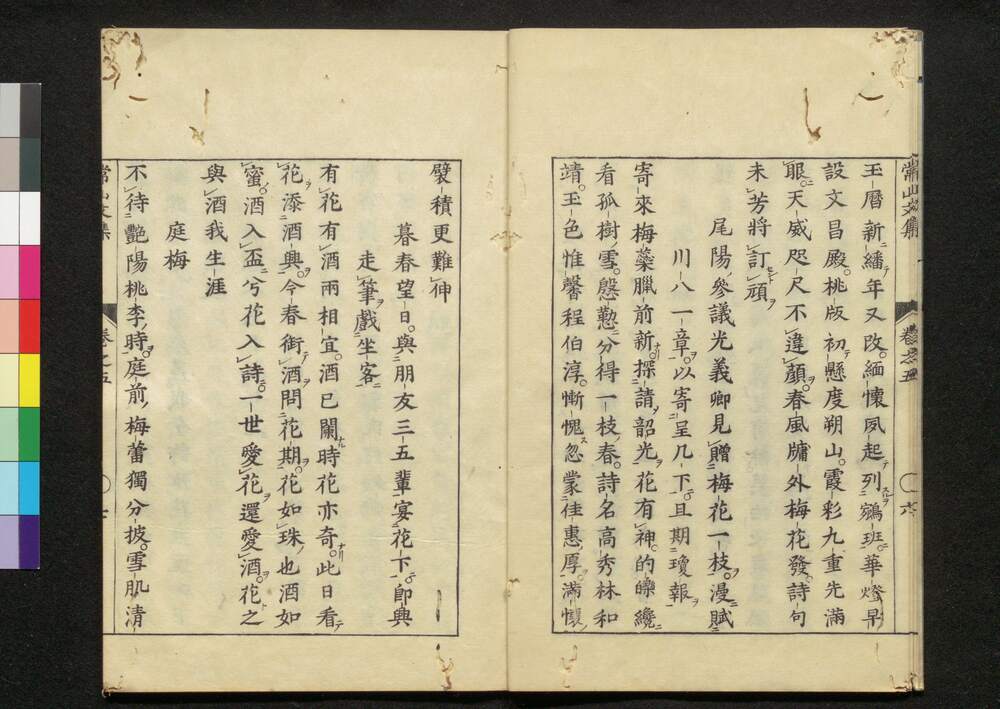 玉曆新繙年又改緬懷夙起列鵷班華燈早
設文昌殿桃版初懸度朔山霞彩九重先滿
眼天威咫尺不違顏春風牖外梅花發詩句
未芳將訂頑
尾陽參議光義卿見贈梅花一枝漫賦
川八一章以寄呈几下且期瓊報
寄來梅蘂臘前新探請韶光花有神的皪纔
看孤樹雪慇懃分得一枝春詩名高秀林和
靖玉色惟馨程伯淳慚愧忽蒙佳惠厚滿懷
常山文集
卷之五
六
襞積更難伸
暮春望日與朋友三五輩宴花下即興
走筆戲坐客
有花有酒兩相宜酒已闌時花亦奇此日看
花添酒興今春衙酒問花期花如珠也酒如
蜜酒入盃兮花入詩一世愛花還愛酒花之
與酒我生涯
庭梅
不待艷陽桃李時庭前梅蕾獨分披雪肌清
常山文集
卷之五
七